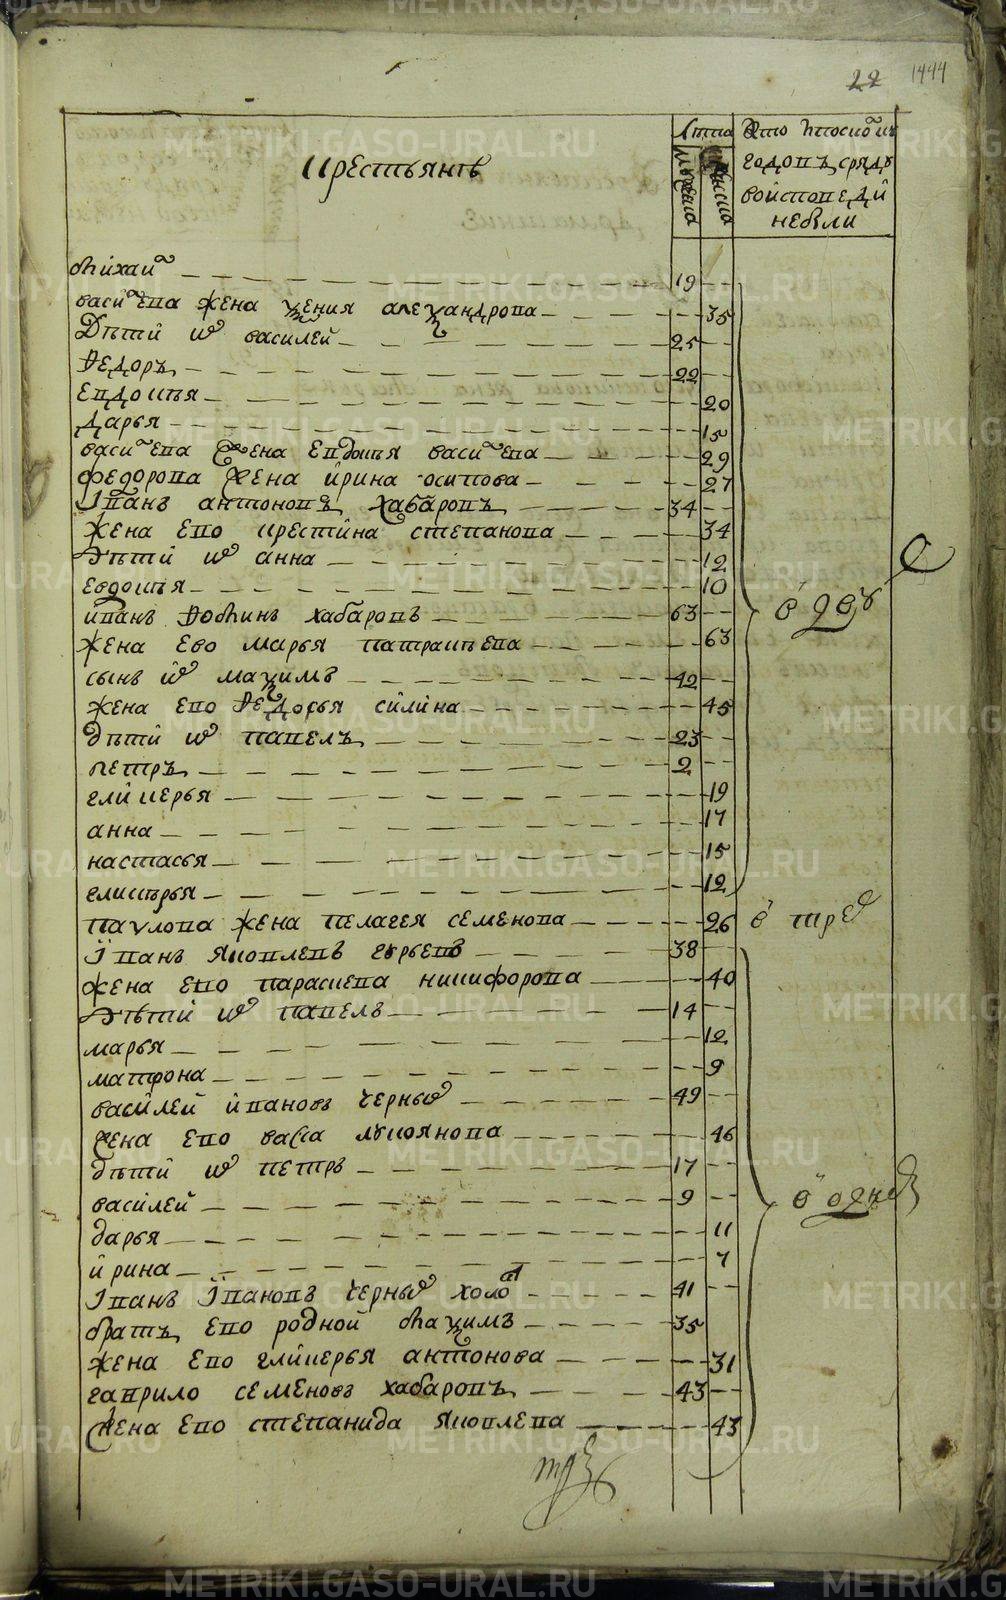 22 1444
Крестьяне
Лета
мужеска
женска
Кто и по сколко
годовъ сряду
во исповеди
не были
Михаил 19
василева жена ксения александрова 35
Дети ѿ василей 25
Федоръ 22
Евдокея 20
дарья 15
василева жена Евдокея василева 29
федорова жена ирина осипова 27
Иванъ антоновъ хабаровъ 34
жена Ево крестина степанова 34
дети ѿ анна 12
евдокея 10
иванъ Фоминъ хабаровъ 63
жена Ево марья патракеева 63
сынъ ѿ максимъ 42
жена Ево Федосья силина 45
дети ѿ павелъ 23
петръ 2
гликерья 19
анна 17
настасья 15
гликерья 12
павлова жена пелагея семенова 26
Иванъ яковлевъ гурьевъ 38
жена Ево парасковья никифорова 40
дети ѿ павелъ 14
марья 12
матрона 9
василей ивановъ черныѡ 49
жена Ево васса лукоянова 46
дети ѿ петръ 17
василей 9
дарья 11
ирина 7
Иванъ Ивановъ черныѡ холо 41
братъ Ево родной Максимъ 35
жена Ево гликерья антонова 31
гаврило семеновъ хабаровъ 43
жена Ево степанида яковлева 43
в двꙋ
в тре
в одно
METRIKI.GASO-URAL.RU